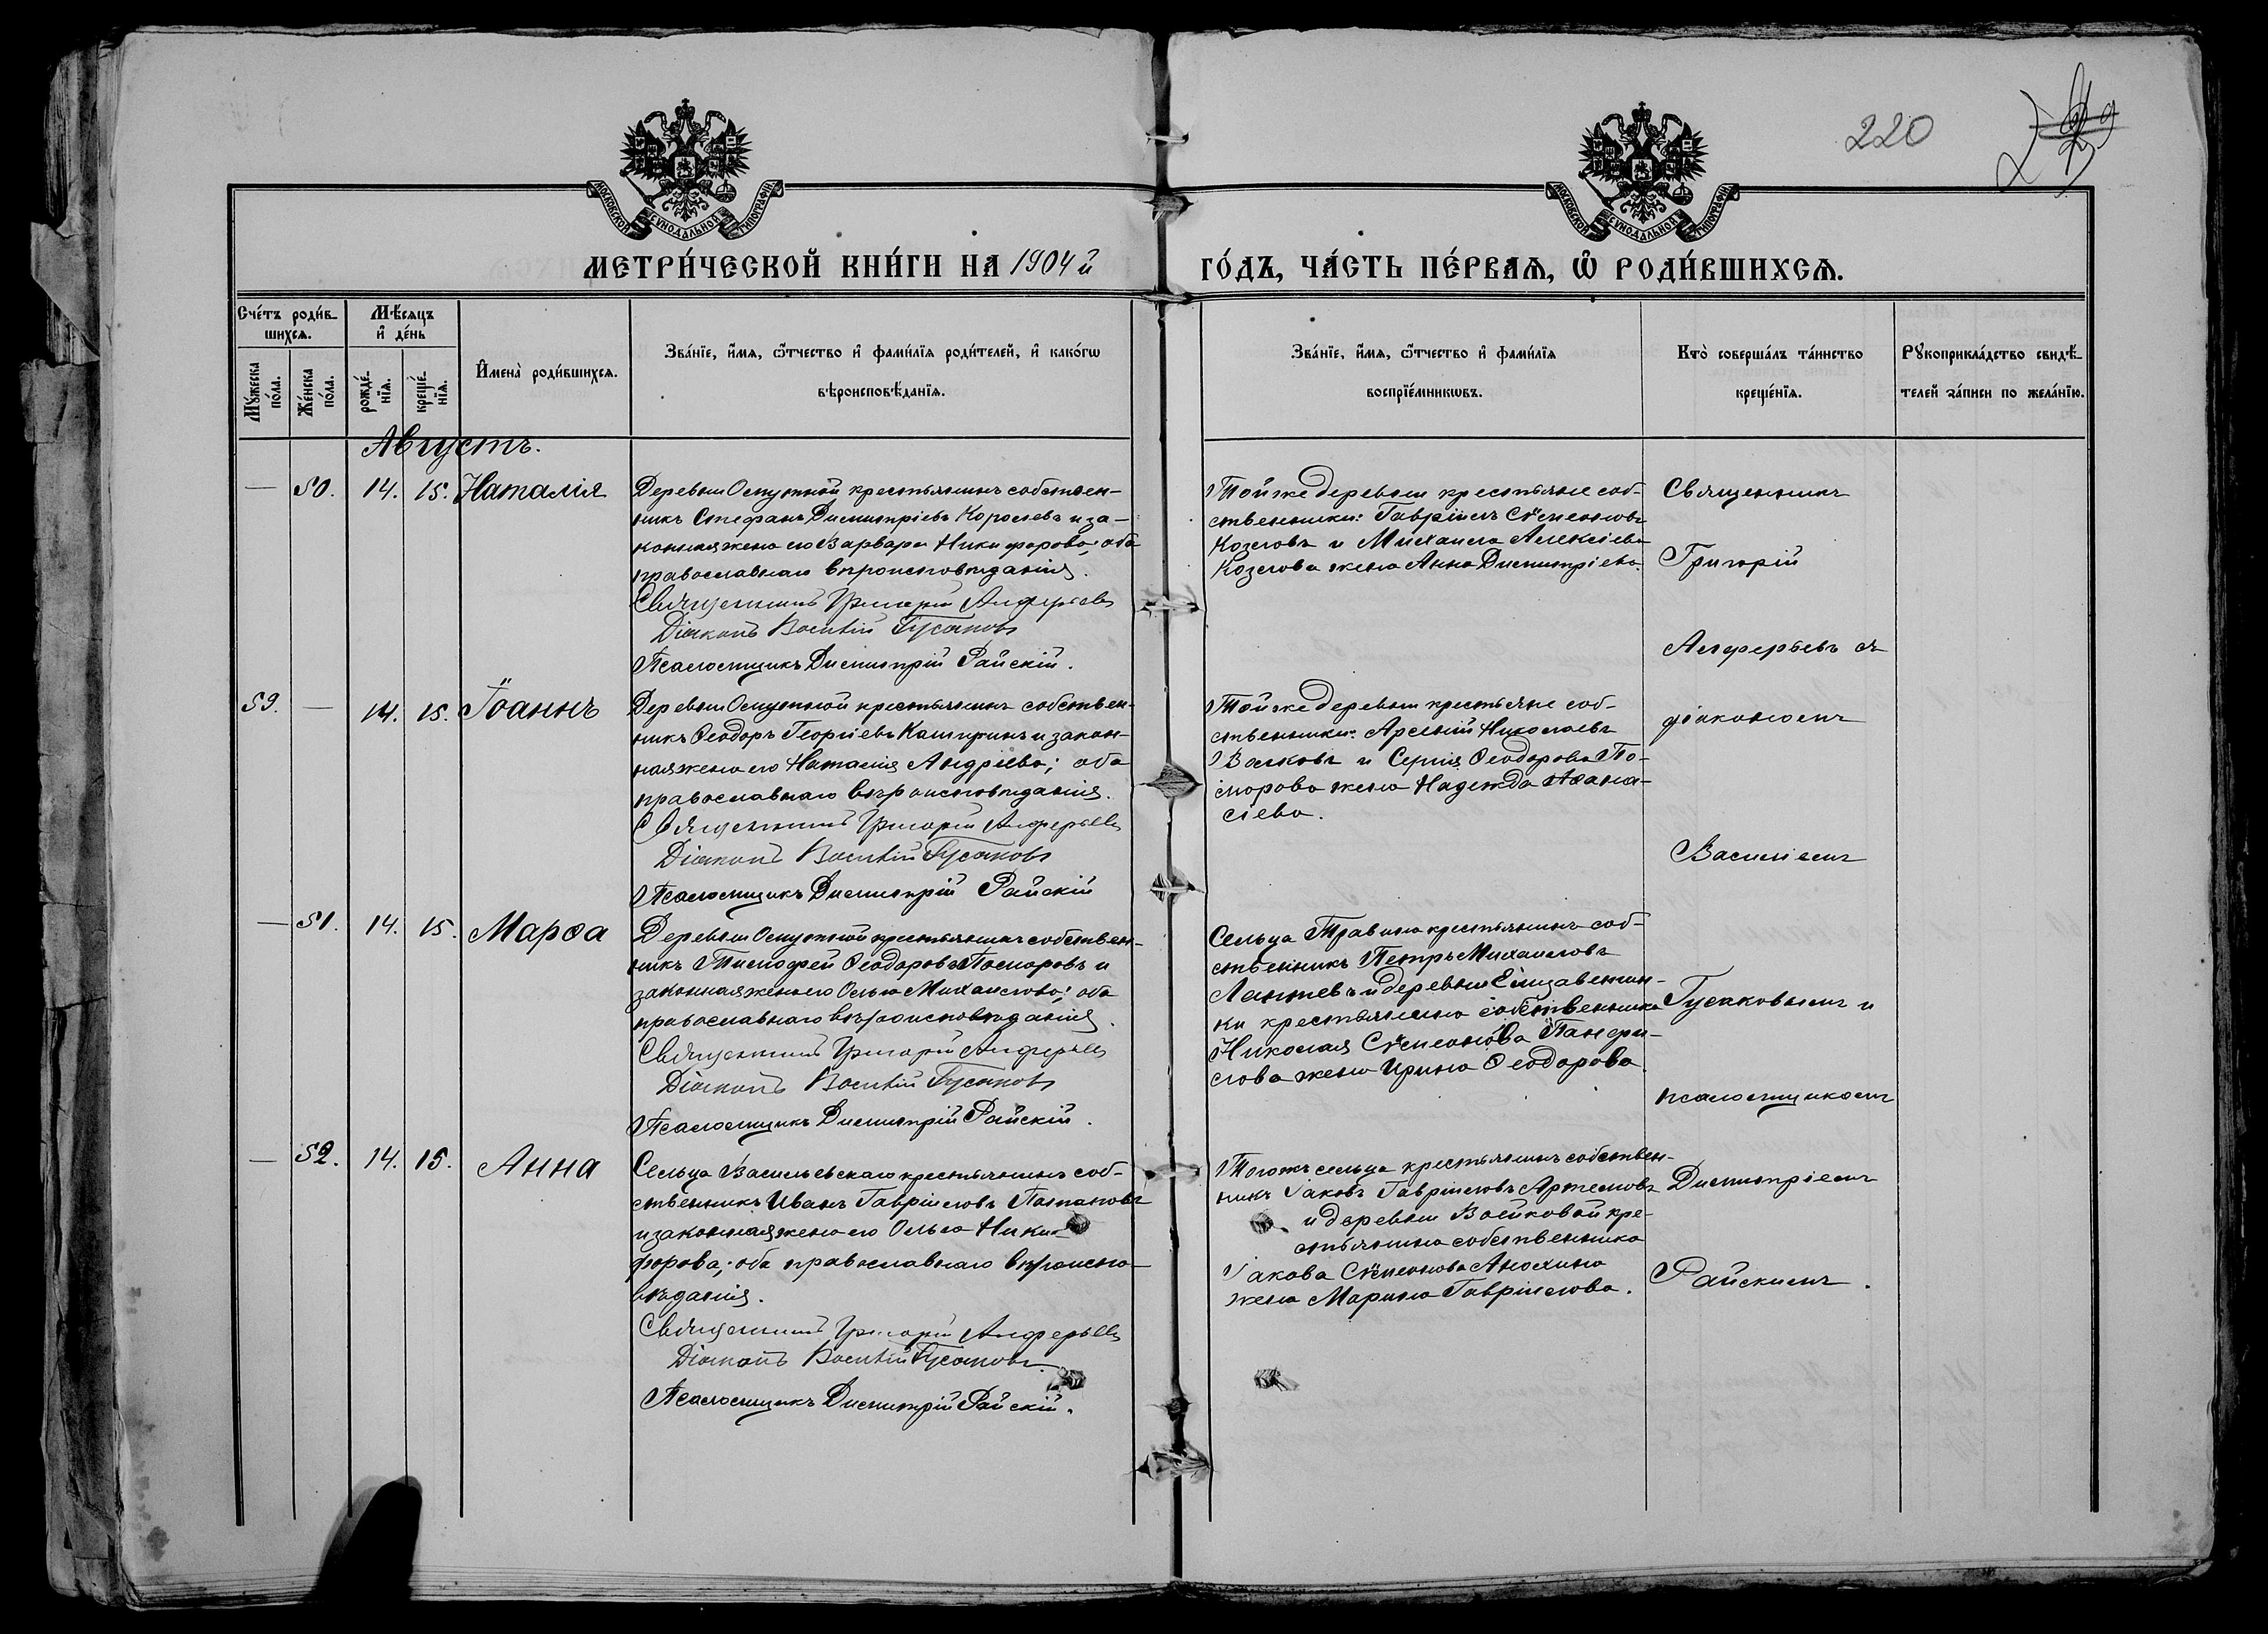 220
МОСКОВСКОЙ СѴНОДАЛЬНОЙ ТИПОГРАФІИ
МОСКОВСКОЙ СѴНОДАЛЬНОЙ ТИПОГРАФІИ
МЕТРИ́ЧЕСКОЙ КНИ́ГИ НА 1904й
ГО́ДЪ, ЧА́СТЬ ПЕ́РВАѦ, Ѿ РОДИ́ВШИХСѦ.
Сче́тъ роди́в-
шихсѧ.
Мꙋ́жеска по́ла.
Же́нска по́ла.
Мѣ́сѧцъ
и҆ де́нь
рожде́-
нїѧ.
креще́-
нїѧ.
И҆мена̀ роди́вшихсѧ.
Зва́нїе, и҆́мѧ, ѻ҆́тчество и҆ фами́лїѧ роди́телей, и҆ како́гѡ
вѣроисповѣ́данїѧ.
Зва́нїе, и҆́мѧ, ѻ҆́тчество и҆ фами́лїѧ
воспрїе́мникѡвъ.
Кто̀ соверша́лъ та́инство
креще́нїѧ.
Рꙋкоприкла́дство свидѣ́-
телей за́писи по жела́нїю.
Августъ.
— 50. 14. 15. Наталія
Деревни Осиутной крестьянинъ собствен-
никъ Стефанъ Димитріевъ Королевъ и за-
конная жена его Варвара Никифорова; оба
православнаго вѣроисповѣданія.
Священникъ Григорій Алферьевъ
Діаконъ Василій Гусаковъ
Псаломщикъ Димитрій Райскій.
Той же деревни крестьяне соб-
ственники: Гавріилъ Симеоновъ
Козловъ и Михаила Алексіева
Козлова жена Анна Димитріева.
59. — 14. 15. Іоаннъ
Деревни крестьянинъ собствен-
никъ Ѳеодоръ Георгіевъ Каширинъ и закон-
ная жена его Наталія Андріева; оба
православнаго вѣроисповѣданія.
Священникъ Григорій Алферьевъ
Діаконъ Василій Гусаковъ
Псаломщикъ Димитрій Райскій
Той же деревни крестьяне соб-
ственники: Арсеній Николаевъ
Волковъ и Сергія Ѳеодорова По-
морова жена Надежда Аѳана-
сіева.
— 51. 14. 15. Марѳа
Деревни крестьянинъ собствен-
никъ Тимофей Ѳеодоровъ Поморовъ и
законная жена его Ольга Михаилова; оба
православнаго вѣроисповѣданія.
Священникъ Григорій Алферьевъ
Діаконъ Василій Гусаковъ
Псаломщикъ Димитрій Райскій.
Сельца Травина крестьянинъ соб-
ственникъ Петръ Михаиловъ
Лаптевъ и деревни Елизаветин-
ки крестьянина собственника
Николая Симеонова Панфи-
лова жена Ирина Ѳеодорова.
— 52. 14. 15. Анна
Сельца Васильевскаго крестьянинъ соб-
ственникъ Иванъ Гавріиловъ
и законная жена его Ольга Ники-
форова; оба православнаго вѣроиспо-
вѣданія.
Священникъ Григорій Алферьевъ
Діаконъ Василій Гусаковъ
Псаломщикъ Димитрій Райскій.
Тогожъ сельца крестьянинъ собствен-
никъ Іаковъ Гавріиловъ Артемовъ
и деревни Войковой кре-
стьянина собственника
Іакова Симеонова Анохина
жена Марина Гавріилова.
Священникъ
Григорій
Алферьевъ съ
діакономъ
Василіемъ
Гусаковымъ и
псаломщикомъ
Димитріемъ
Райскимъ.